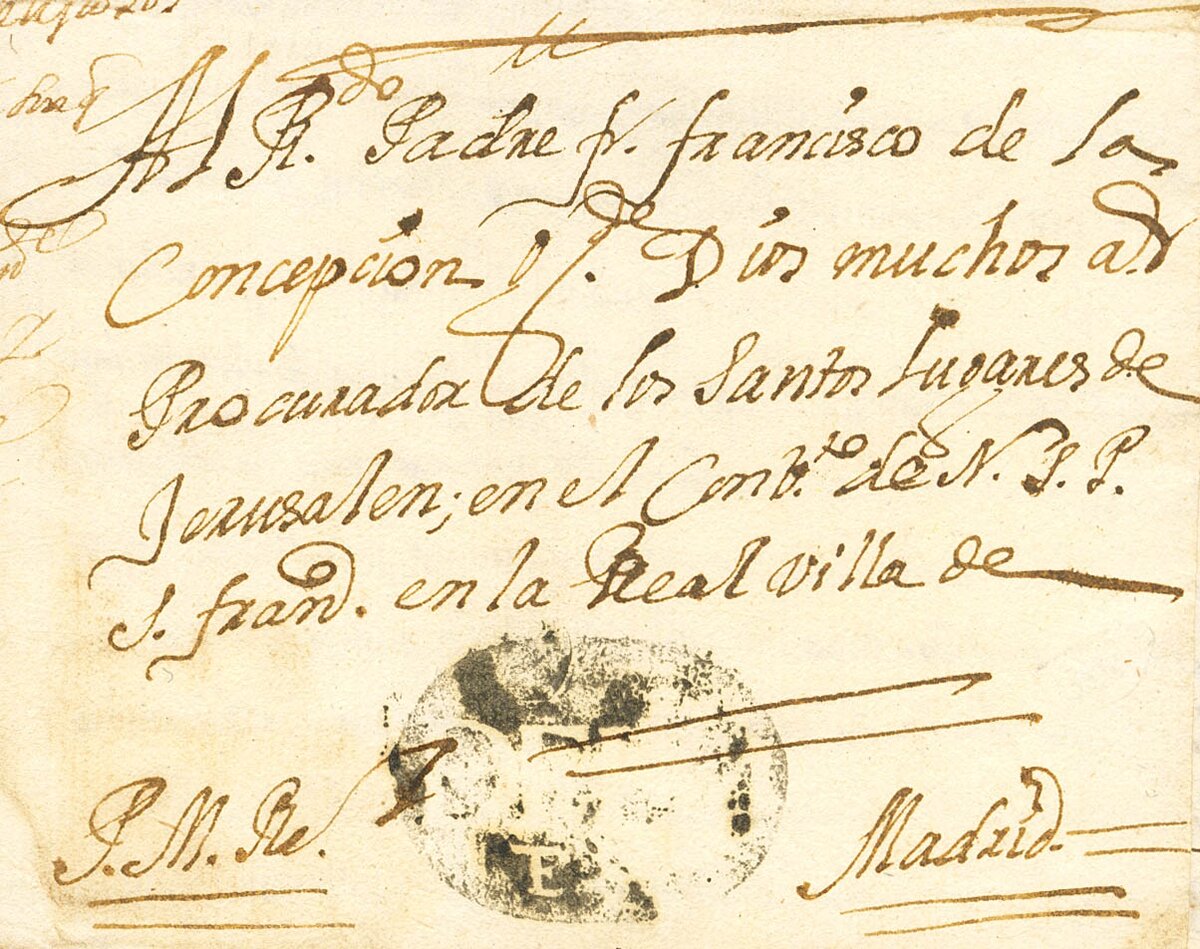 Al R.do Padre fr. francisco de la
Concepcion g.de Dios muchos a.s
Procurador de los Santos Lugares de
Jerusalen; en el Conb.to de N. S. P.
S. fran.co en la Real villa de
P. M. Re.
Madrid
E